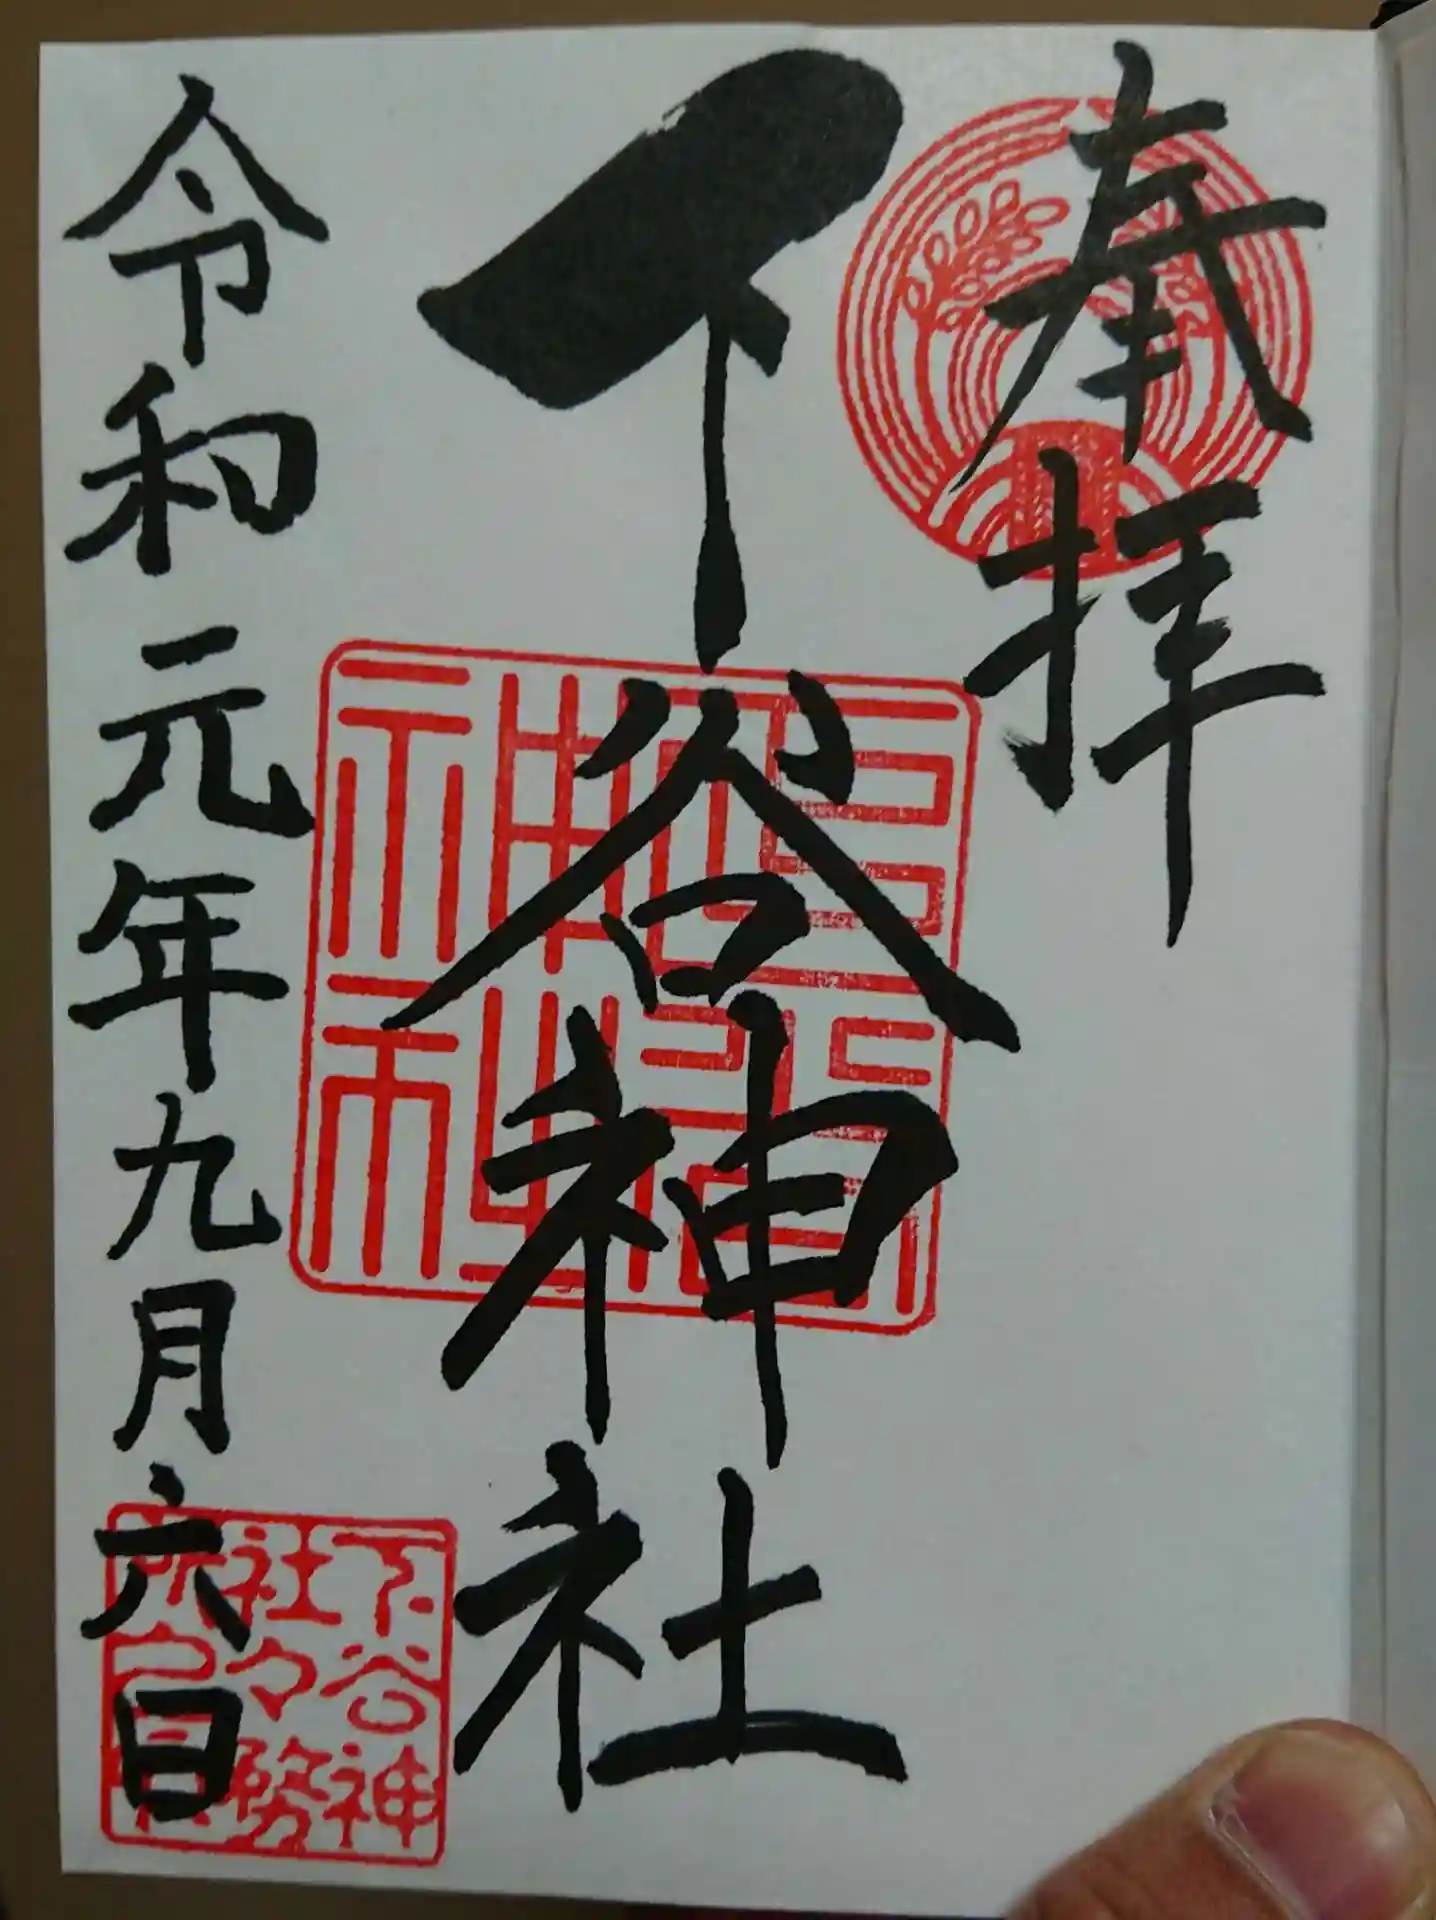 奉拝
下谷神社
令和元年九月六日
下谷神
社々務
所